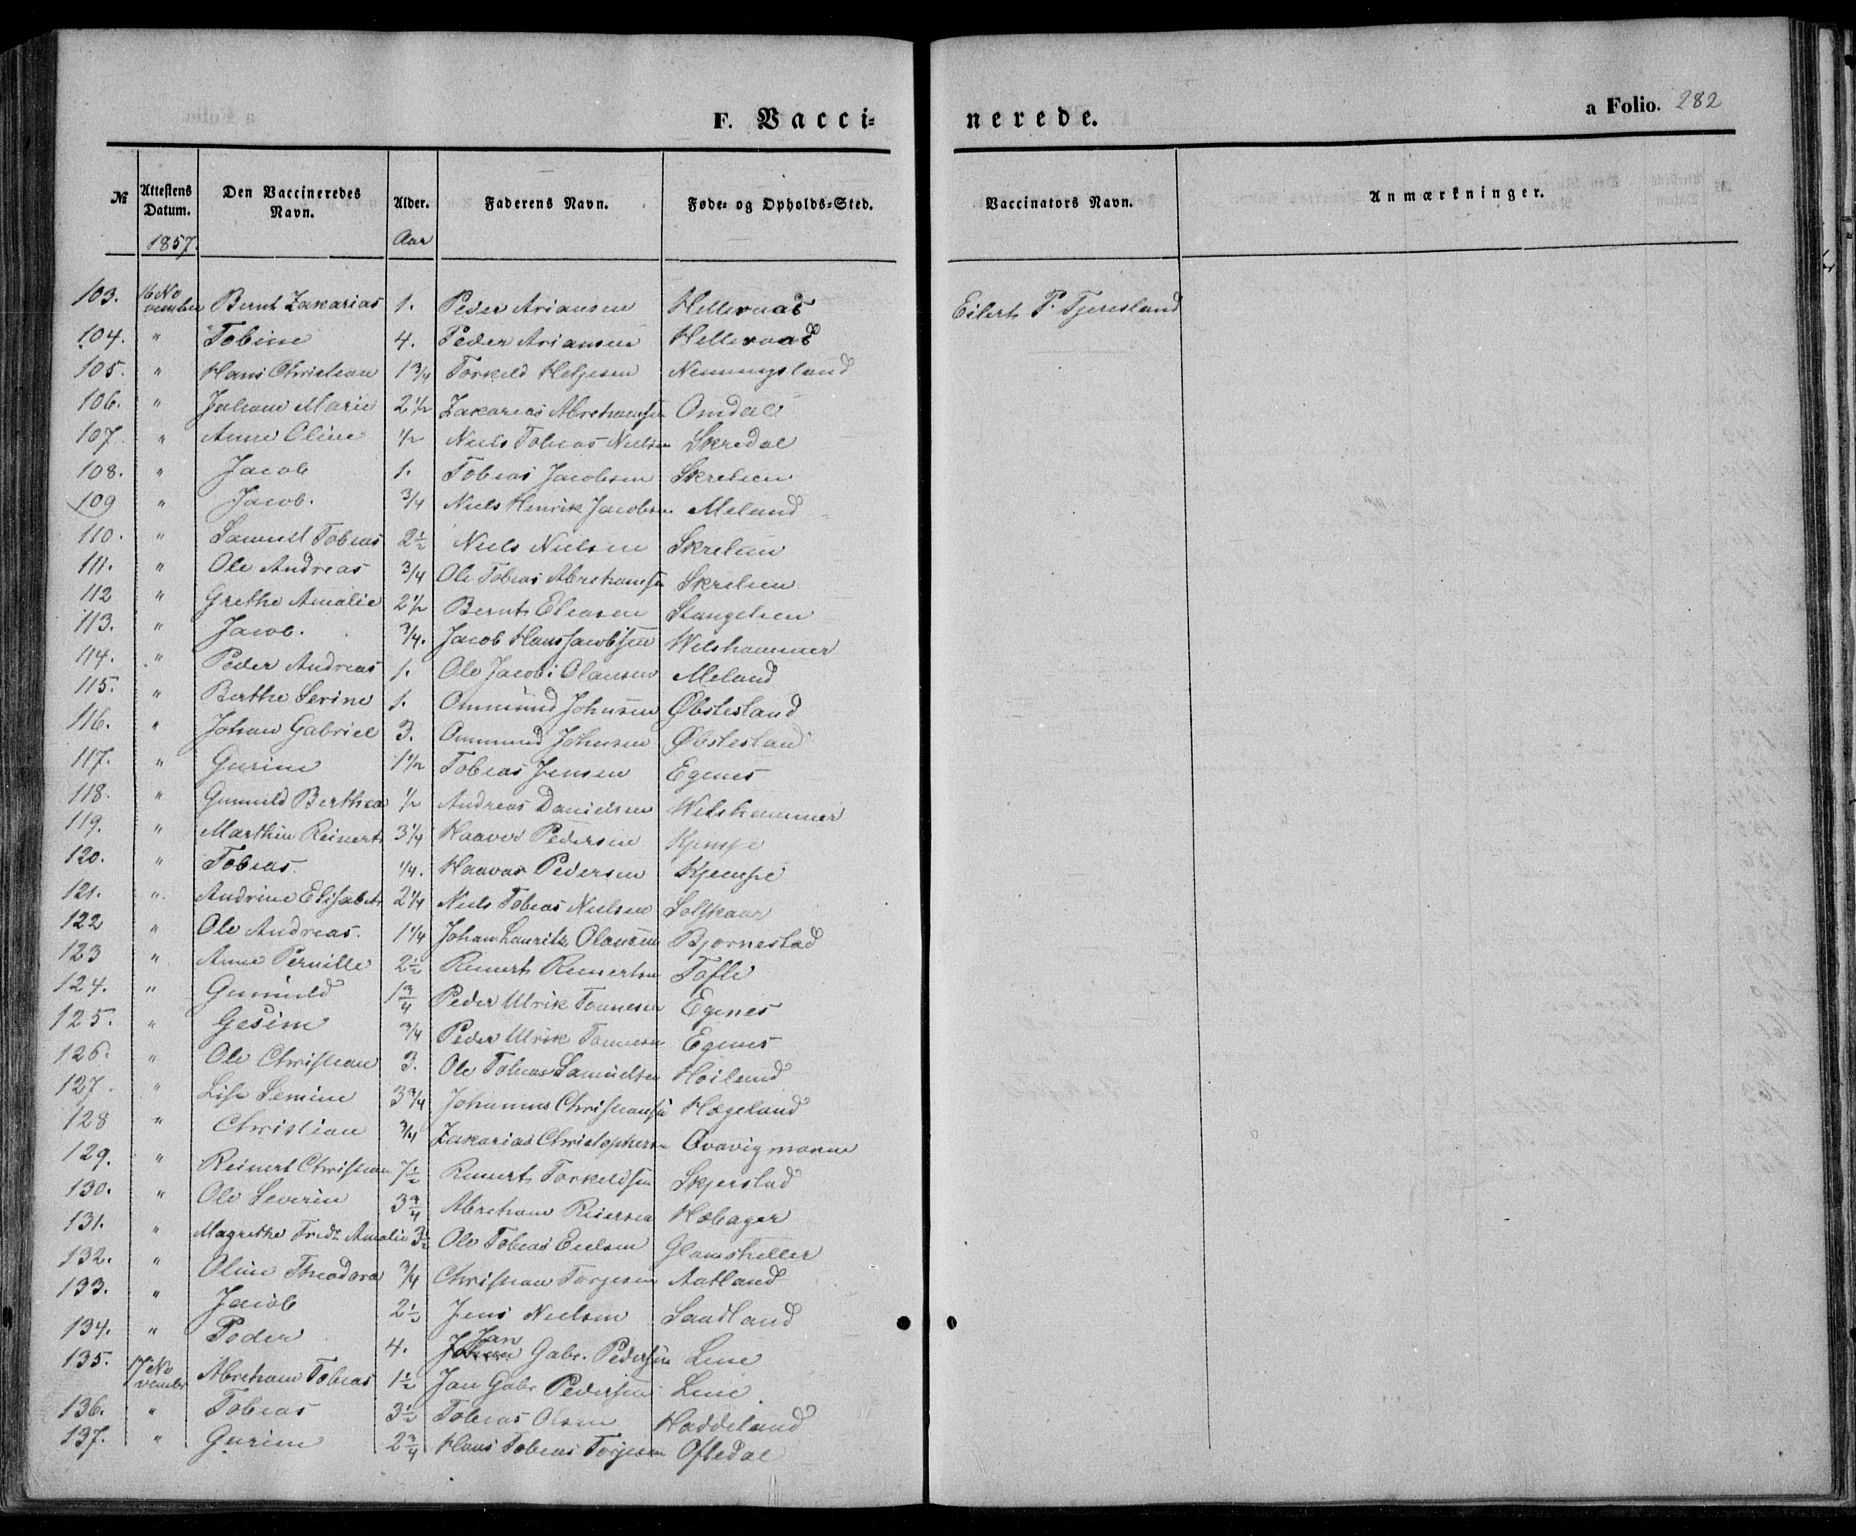 F. Vacci-
nerede.
a Folio. 282
№ Attestens Datum. Den Vaccineredes Navn. Alder. Faderens Navn. Føde- og Opholds-Sted. Vaccinators Navn. Anmærkninger.
1857. Aar
103. 16 November Bernt Zakarias 1. Peder Ariansen Hellernæs Eilert P. Tjeresland
104. " Tobine 4. Peder Ariansen Hellernæs
105. " Hans Christian 1 3/4 Torkeld Helgesen Nenningsland
106. " Juliane Marie 2 1/2 Zakarias Abrehamsen Omdal
107. " Anne Oline 1/2 Niels Tobias Nielsen Skredal
108. " Jacob 1. Tobias Jacobsen Skrelien
109 " Jacob. 3/4 Niels Henrik Jacobsen Meland
110. " Samuel Tobias 2 1/2 Niels Nielsen Skrelien
111. " Ole Andreas 3/4 Ole Tobias Abrehamsen Skrelien
112 " Grethe Amalie 2 1/2 Bernt Eliasen Stangelien
113. " Jacob. 3/4. Jacob Hans Jacobsen Welshammer
114. " Peder Andreas 1. Ole Jacob Olausen Meland
115. " Berthe Serine 1. Ommund Johnsen Øbstesland
116. " Johan Gabriel 3. Ommund Johnsen Øbstesland
117. " Gurine 1 1/2 Tobias Jensen Egenes
118. " Gunnild Berthea 1/2 Andreas Danielsen Welshammer
119. " Marthin Reinert 3 1/4 Haavor Pedersen Kjempe
120. " Tobias. 1/4. Haavor Pedersen Kjempe
121. " Andrine Elisabeth 2 1/4 Niels Tobias Nielsen Solskaar
122 " Ole Andreas. 1 1/4 Johan Lauritz Olausen Bjornestad
123 " Anne Pernille 2 1/2 Reinert Reinertsen Tofte
124. " Gunnild 1 3/4 Peder Ulrik Tønnesen Egenes
125. " Gesine 3/4 Peder Ulrik Tønnesen Egenes
126. " Ole Christian 3. Ole Tobias Samuelsen Høiland
127. " Lise Semine 3 3/4 Johannes Christiansen Hægeland
128 " Christian 3/4 Zakarias Christophersen Qvavigmonen
129. " Reinert Christian 7 1/2 Reinert Torkeldsen Skjerstad
130. " Ole Severin 3 3/4 Abreham Reiersen Hæbager
131. " Magrethe Fredr. Amalie 3 1/2 Ole Tobias Eielsen Glamsheller
132. " Oline Theodora 3/4 Christian Torgesen Aatland
133. " Jacob 2 1/2 Jens Nielsen Sandland
134. " Peder 4. Jan Gabr. Pedersen Line
135. 17 November Abreham Tobias 1 1/2 Jan Gabr. Pedersen Line
136. " Tobias 3 1/2 Tobias Olsen Haddeland
137. " Gurine 2 3/4 Hans Tobias Torjesen Oftedal